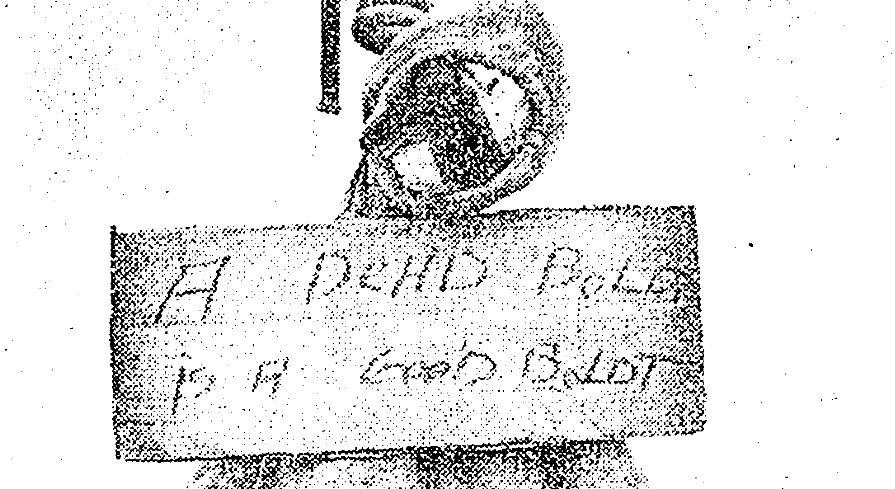 A DEAD BOLD
IS A GOOD BOLDT